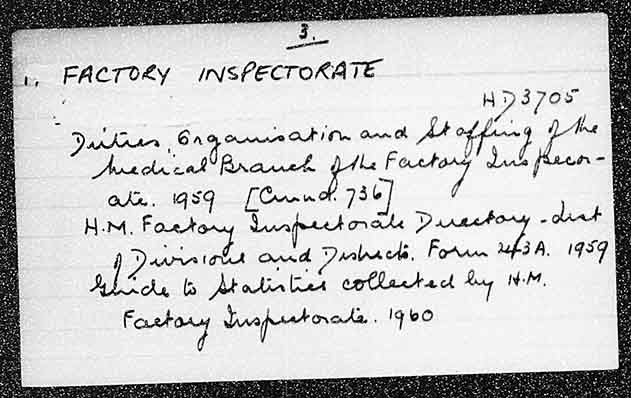 3.
1. FACTORY INSPECTORATE
HD3705
Duties, Organisation and Staffing of the
Medical Branch of the Factory Inspecor-
ate. 1959 [Cmnd. 736]
H.M. Factory Inspectorate Directory - List
of Divisions and Districts. Form 243A. 1959
Guide to Statistics collected by H.M.
Factory Inspectorate. 1960